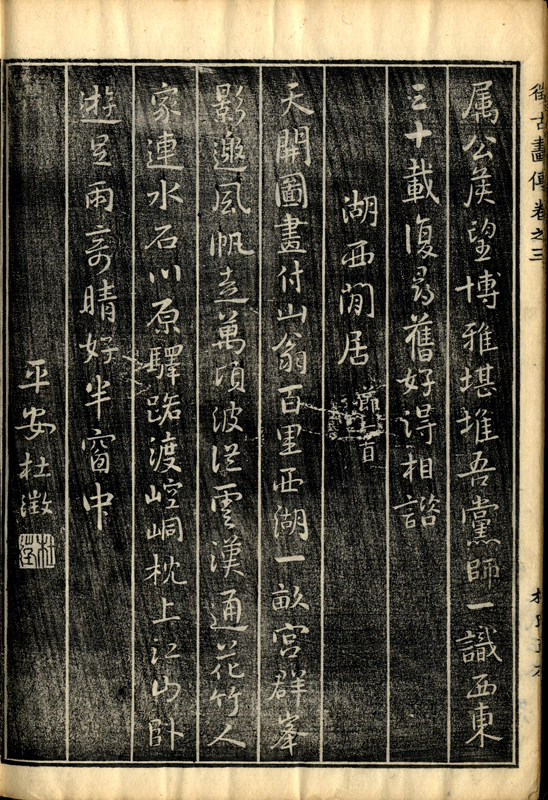 徴古畫傳卷之三
属公侯望博雅堪推吾黨師一識西東
三十載復尋舊好得相諮
湖西閒居 節二首
天開圖畫付山翁百里西湖一畝宮群峯
影邀風帆走萬頃波從雲漢通花竹人
家連水石川原驛路渡崆峒枕上江山卧
遊足雨奇晴好半窗中
平安杜澂